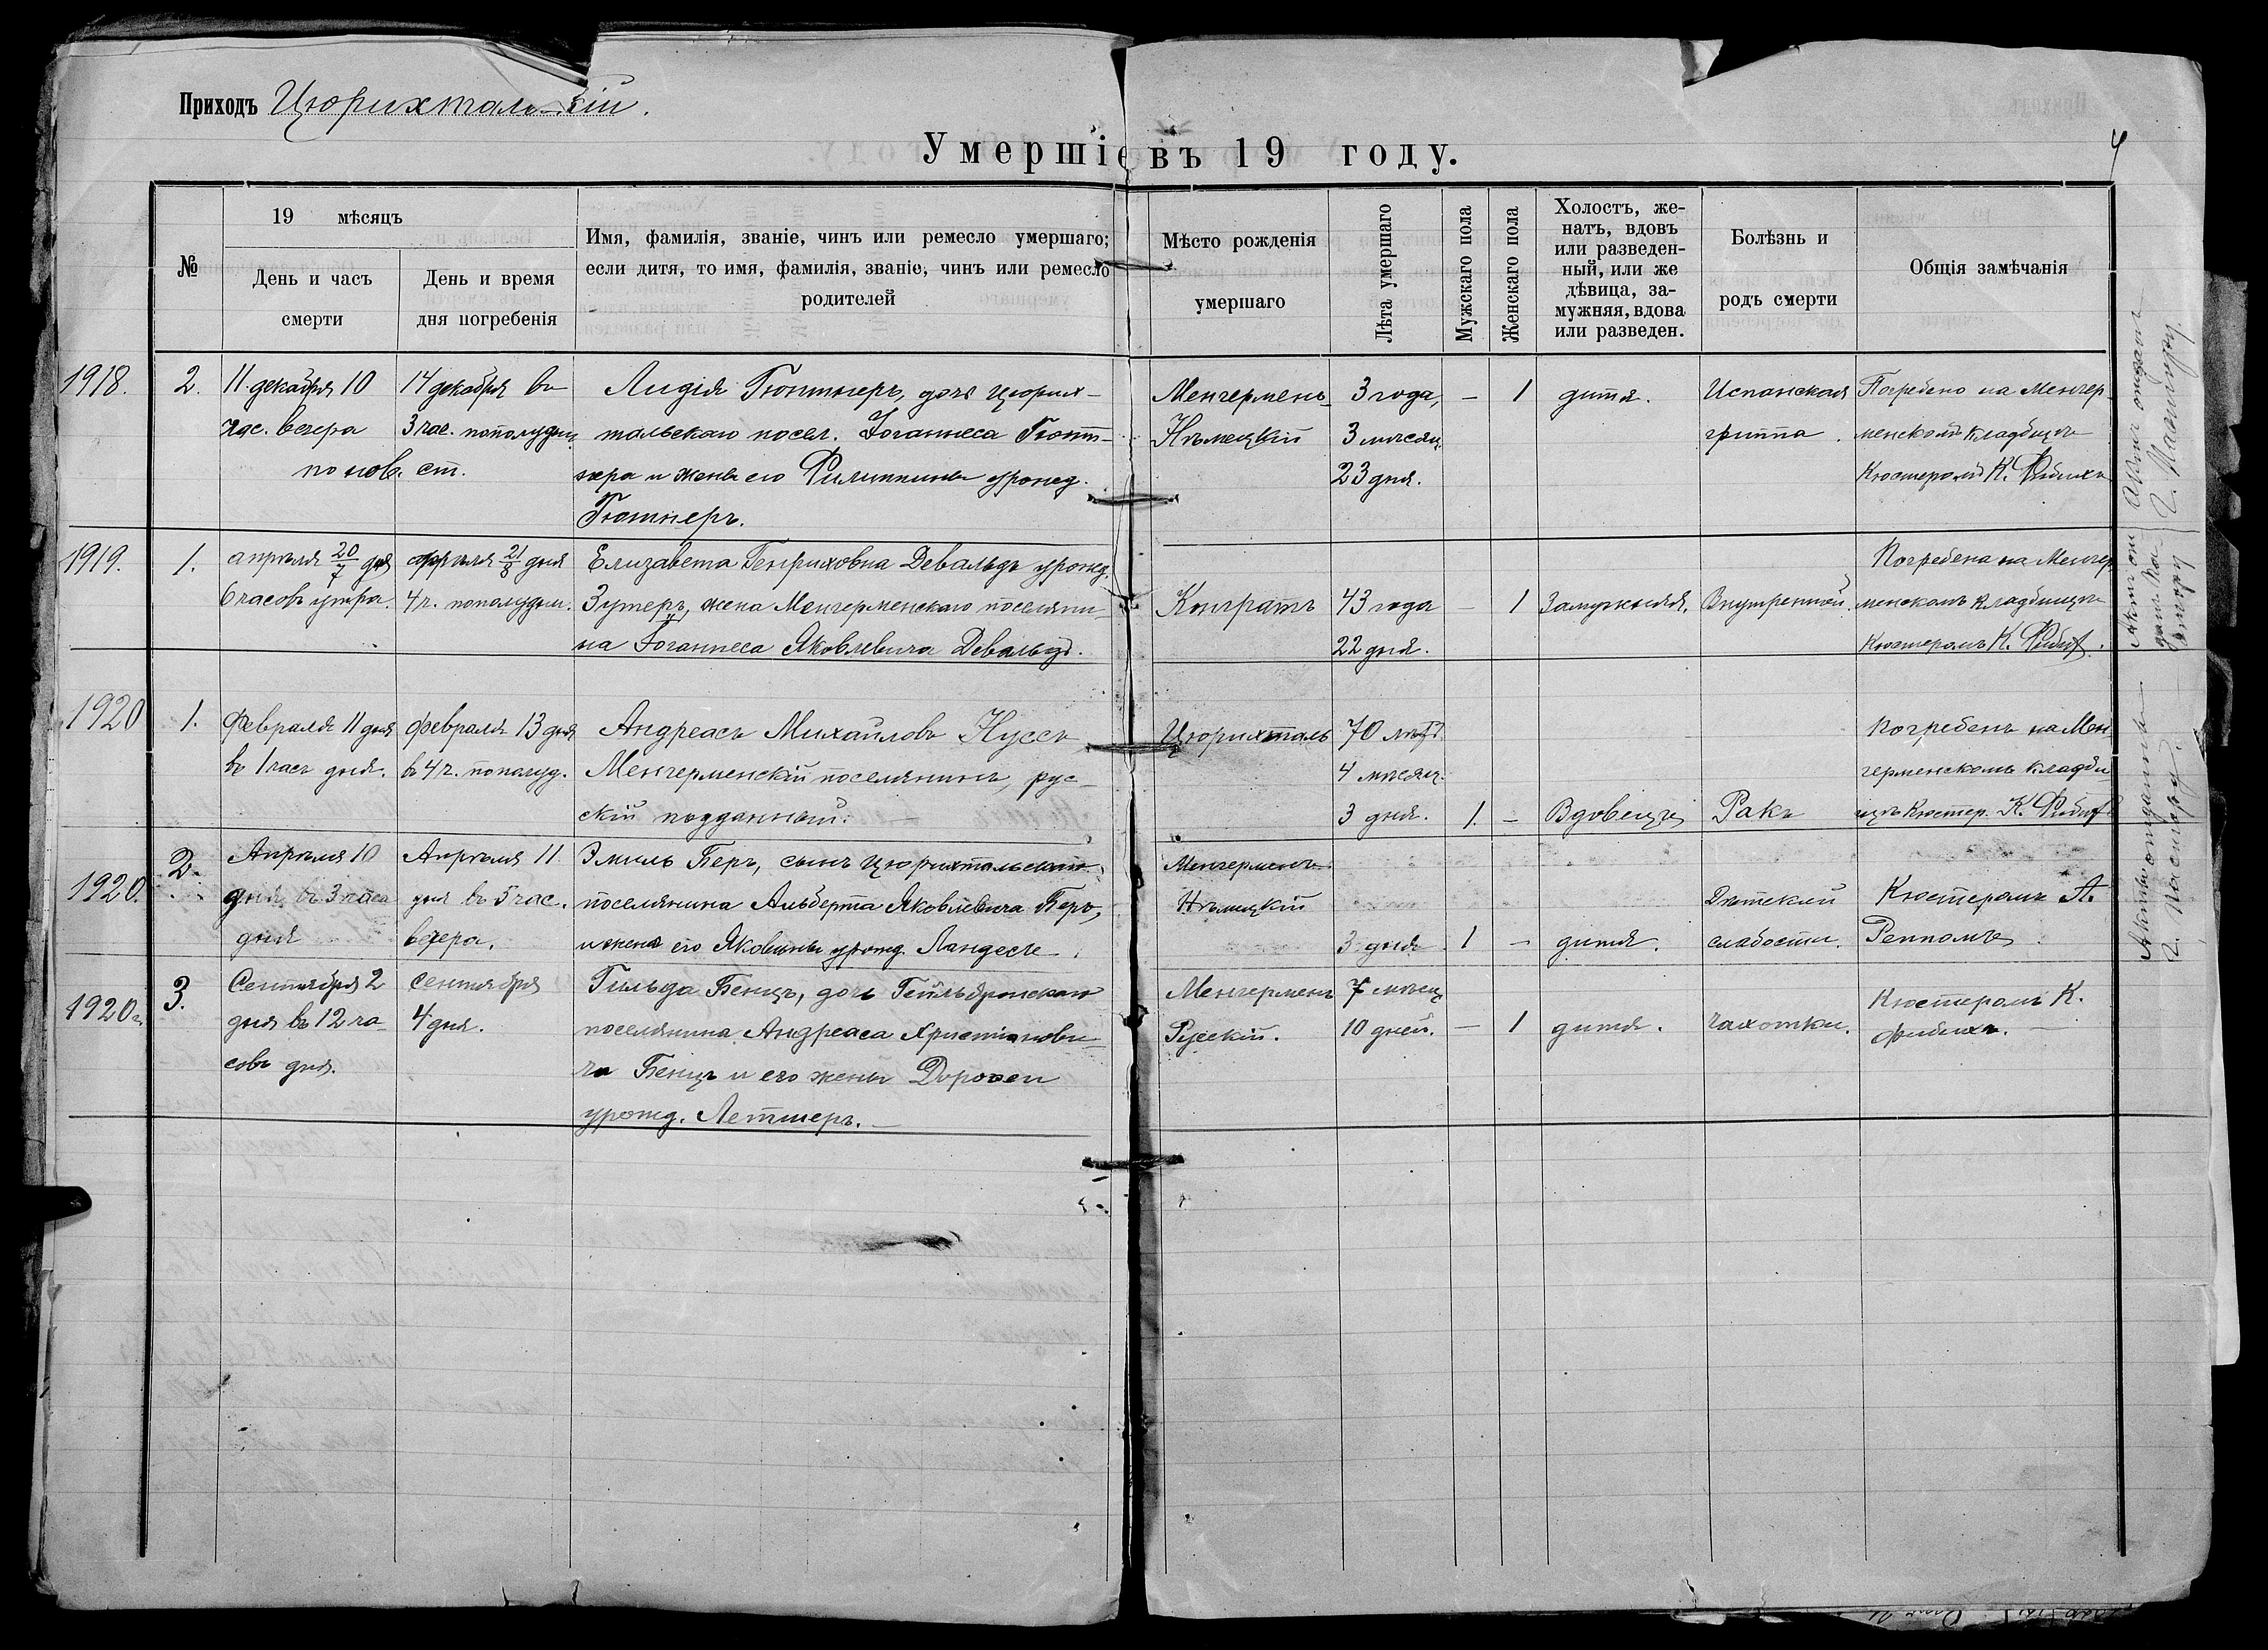 Приходъ Цюрихтальскій.
Умершіе въ 19 году.
4
№
19 мѣсяцъ
День и часъ
смерти
День и время
дня погребенія
Имя, фамилія, званіе, чинъ или ремесло умершаго;
если дитя, то имя, фамилія, званіе, чинъ или ремесло
родителей
Мѣсто рожденія
умершаго
Лѣта умершаго
Мужскаго пола
Женскаго пола
Холостъ, же-
натъ, вдовъ
или разведен-
ный, или же
дѣвица, за-
мужняя, вдова
или разведен.
Болѣзнь и
родъ смерти
Общія замѣчанія
1918.
2.
11 декабря 10
час. вечера
по нов. ст.
14 декабря въ
3 час. пополудни
Лидія Гюнтнеръ, дочь Цюрих-
тальскаго посел. Іоганнеса Гюнт-
нера и жены его Филиппины урожд.
Гютнеръ.
Менгерменъ
Нѣмецкій
3 года,
3 мѣсяц.
23 дня.
—
1
дитя.
Испанская
гриппа.
Погребено на Менгер
менскомъ кладбищѣ
Кюстеромъ К. Фибихъ
1919.
1.
апрѣля 20/7 дня
6 часовъ утра.
апрѣля 21/8 дня
4 ч. пополудни.
Елизавета Генриховна Девальдъ урожд.
Зутеръ, жена Менгерменскаго поселяни-
на Іоганнеса Яковлевича Девальдъ.
Конгратъ
43 года
22 дня.
—
1
Замужняя.
Внутренной.
Погребена на Менгер
менскомъ кладбищѣ
Кюстеромъ К. Фибих.
1920
1.
Февраля 11 дня
въ 1 часъ дня.
февраля 13 дня
въ 4 ч. пополуд.
Андреасъ Михайловъ Нуссъ
Менгерменскій поселянинъ, рус-
скій подданный.
Цюрихталь
70 лѣтъ
4 мѣсяц.
3 дня.
1.
—
Вдовецъ
Ракъ
Погребенъ на Мен-
герменскомъ кладби
щѣ Кюстер. К. Фибих
1920.
2.
Апрѣля 10
дня въ 3 часа
дня
Апрѣля 11
дня въ 5 час.
вечера.
Эмиль Беръ, сынъ Цюрихтальскаго
поселянина Альберта Яковлевича Беръ,
и жена его Яковины урожд. Ландесъ.
Менгерменъ
Нѣмецкій
3 дня
1
—
дитя.
Дѣтской
слабости.
Кюстеромъ А.
Реппомъ
1920 г.
3.
Сентября 2
дня въ 12 ча-
совъ дня.
сентября
4 дня.
Гильда Бенцъ, дочь Гейльбронскаго
поселянина Андреаса Христіанови-
ча Бенцъ и его жены Доротеи
урожд. Летшеръ.—
Менгерменъ
Русскій.
7 мѣсяц
10 дней.
—
1
дитя.
чахотки.
Кюстеромъ К.
Фибихъ.—
Актъ отданъ
г. Пастору.
Актъ от
данъ Па-
стору
Акты отданы
г. Пастору.